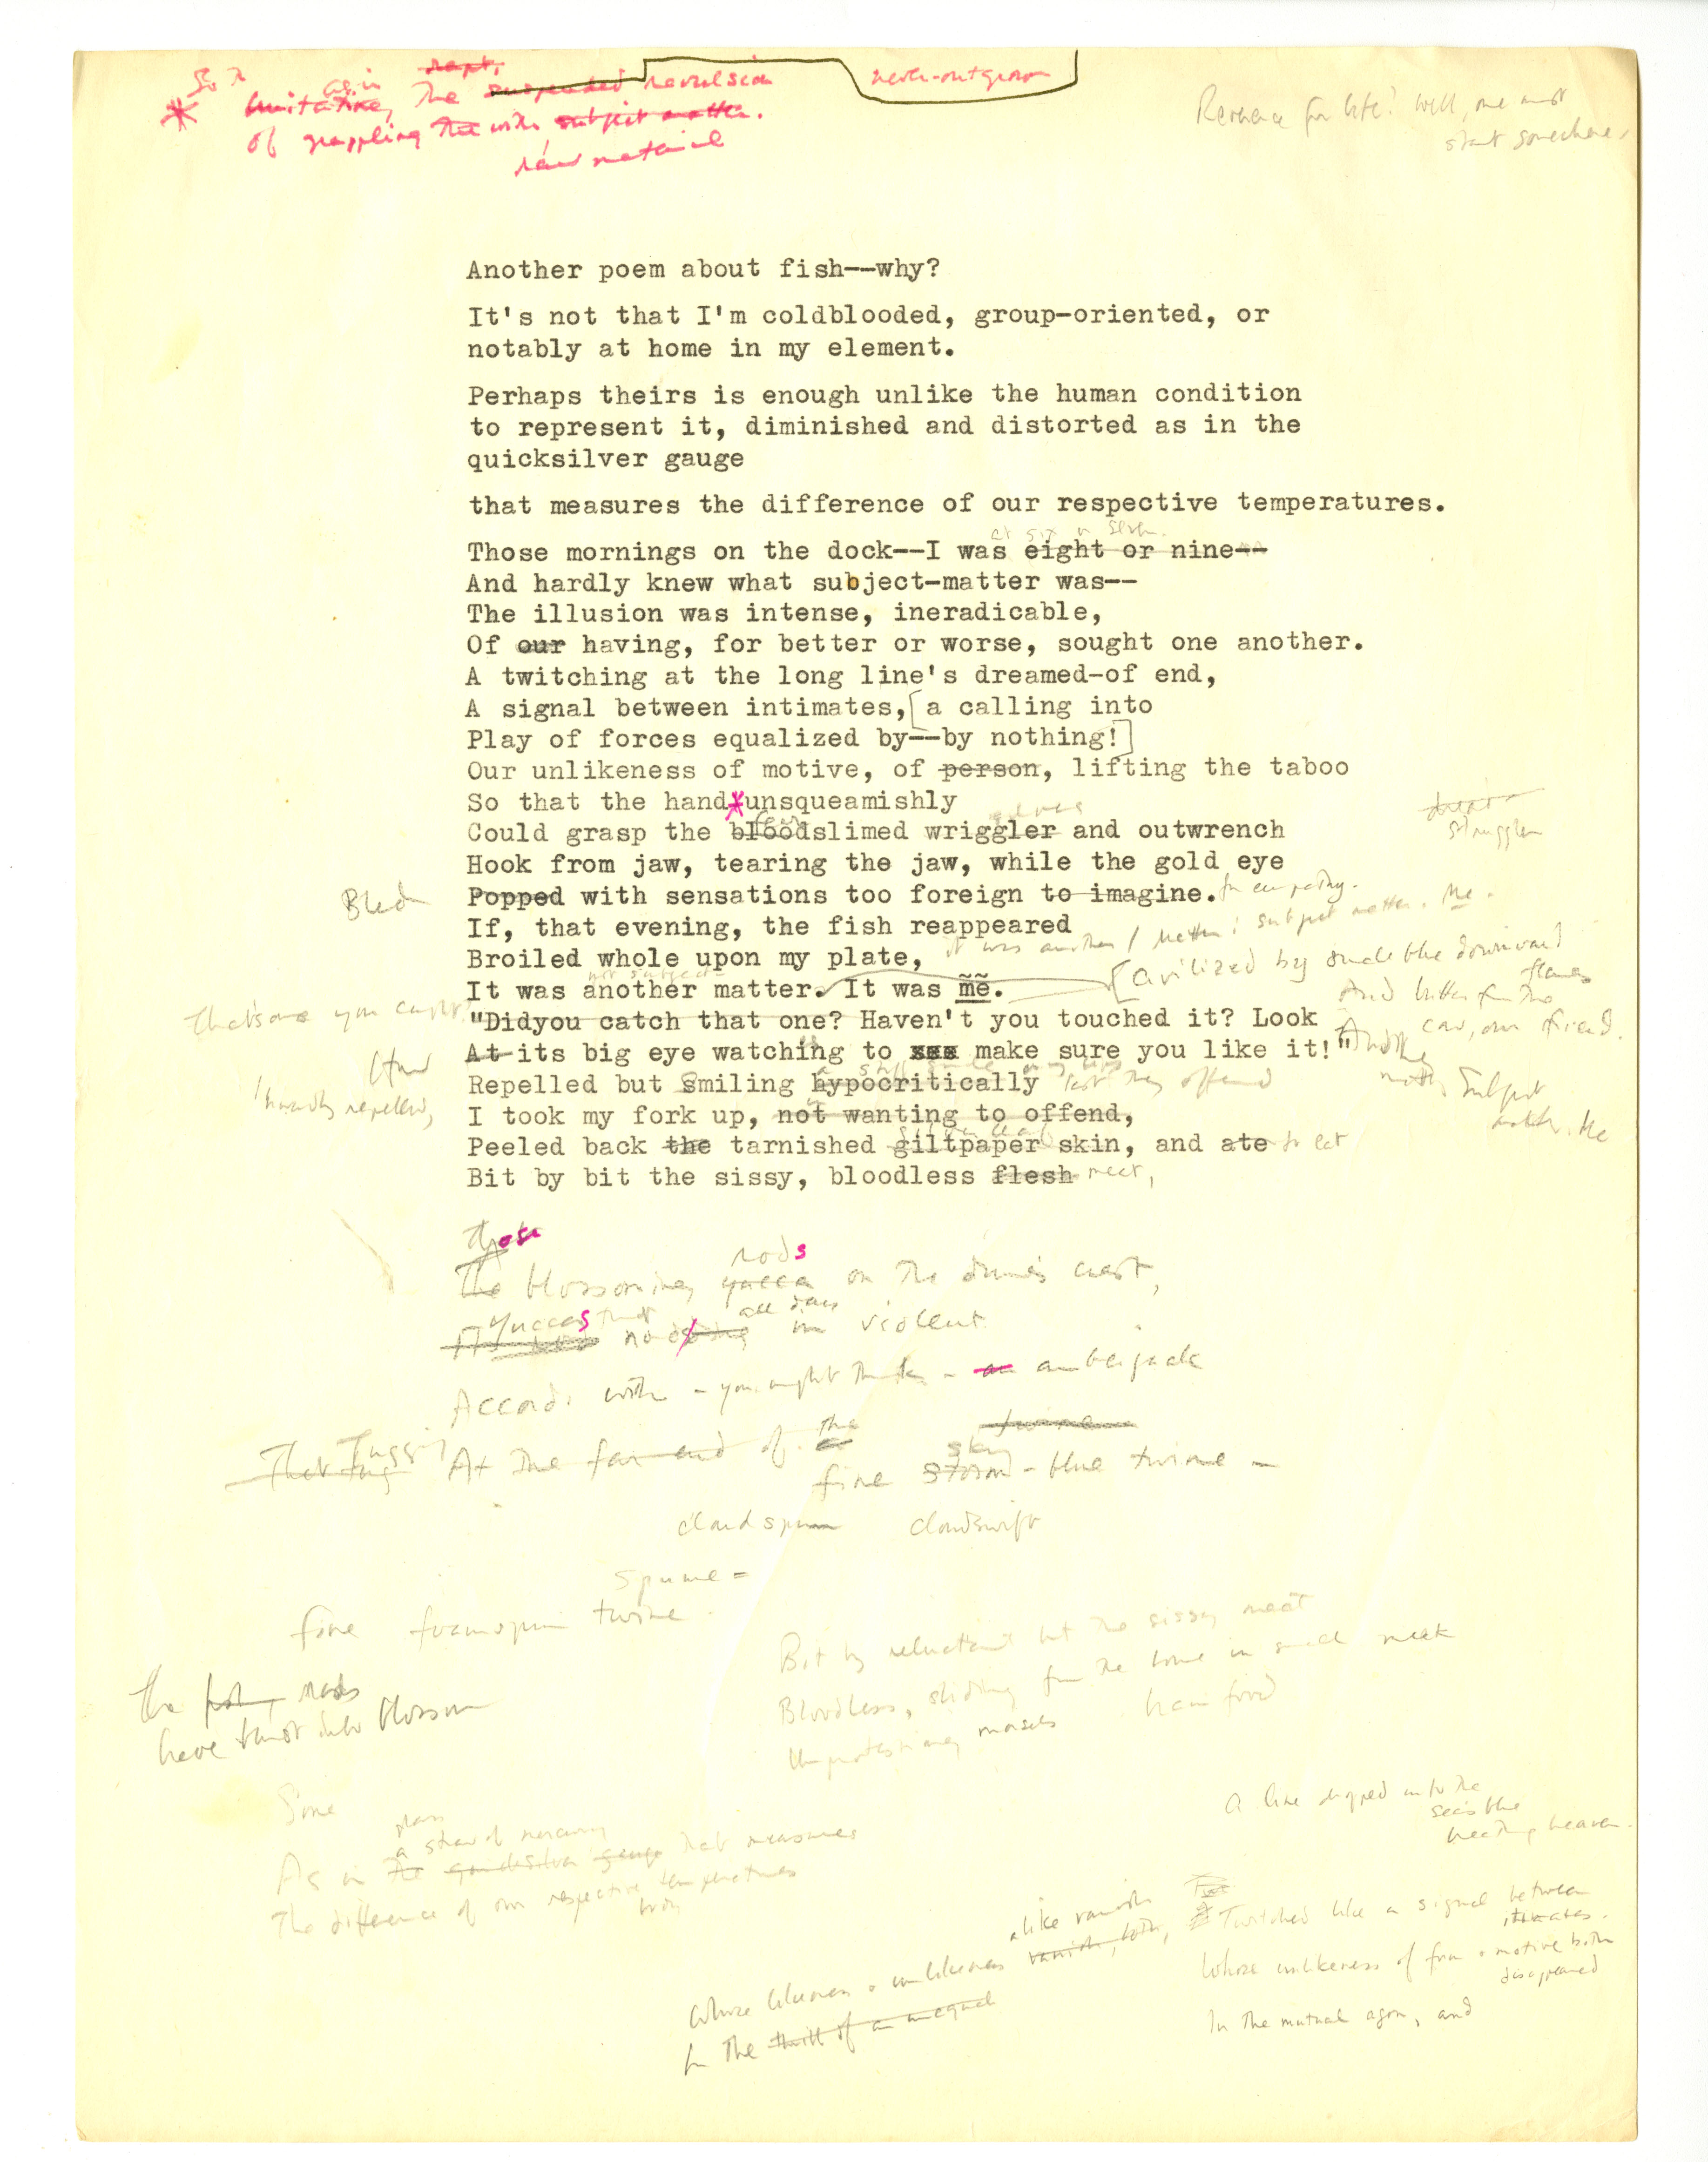 as in rapt,
the suspended revulsion never-outgrown
of grappling the with subject matter.
raw material
Reverence for life? Well, one must
start somewhere,
Another poem about fish--why?
It's not that I'm coldblooded, group-oriented, or
notably at home in my element.
Perhaps theirs is enough unlike the human condition
to represent it, diminished and distorted as in the
quicksilver gauge
that measures the difference of our respective temperatures.
at six or seven.
Those mornings on the dock--I was eight or nine--
And hardly knew what subject-matter was--
The illusion was intense, ineradicable,
Of our having, for better or worse, sought one another.
A twitching at the long line's dreamed-of end,
A signal between intimates,[a calling into
Play of forces equalized by--by nothing!]
Our unlikeness of motive, of person, lifting the taboo
So that the hand*unsqueamishly
Could grasp the bloodslimed wriggler and outwrench
struggler
Hook from jaw, tearing the jaw, while the gold eye
Bled
Popped with sensations too foreign to imagine. for empathy.
If, that evening, the fish reappeared
Broiled whole upon my plate,
it was another / matter: subject matter. Me.
[Civilized by smokeblue downward
flames
And butter from the
not subject-
It was another matter. It was me.
That's one you caught
"Didyou catch that one? Haven't you touched it? Look
At its big eye watching to see make sure you like it!"
Subject
matter. Me
Repelled but Smiling hypocritically lest they offend
Inwardly repelled,
I took my fork up, not wanting to offend,
Peeled back the tarnished giltpaper skin, and ate to eat
Bit by bit the sissy, bloodless flesh meat,
those
rods
The blossoming yucca on the dune's crest,
yuccas that all day
nodding in violent
Accord, with - you might think - an amberjack
That tug Tugging At the far end of a the
twine
sky
fine storm-blue twine -
cloudspun cloudswift
spume-
fine foamspun twine
The rods
have burst into blossom
Bit by reluctant bit the sissy meat
Bloodless, sliding from the bone in small meek
Unprotesting morsels brain food
Some
glass
a straw of mercury
As in the quicksilver gauge that measures
The difference of our respective temperatures
body
A line dropped into the
sea's blue
heaven.
Twitched like a signal between
intimates.
Whose unlikeness of form & motive both
disappeared
In the mutual agon, and
alike vanish
Whose likeness & unlikeness vanish, both,
In the thrill of an unequal